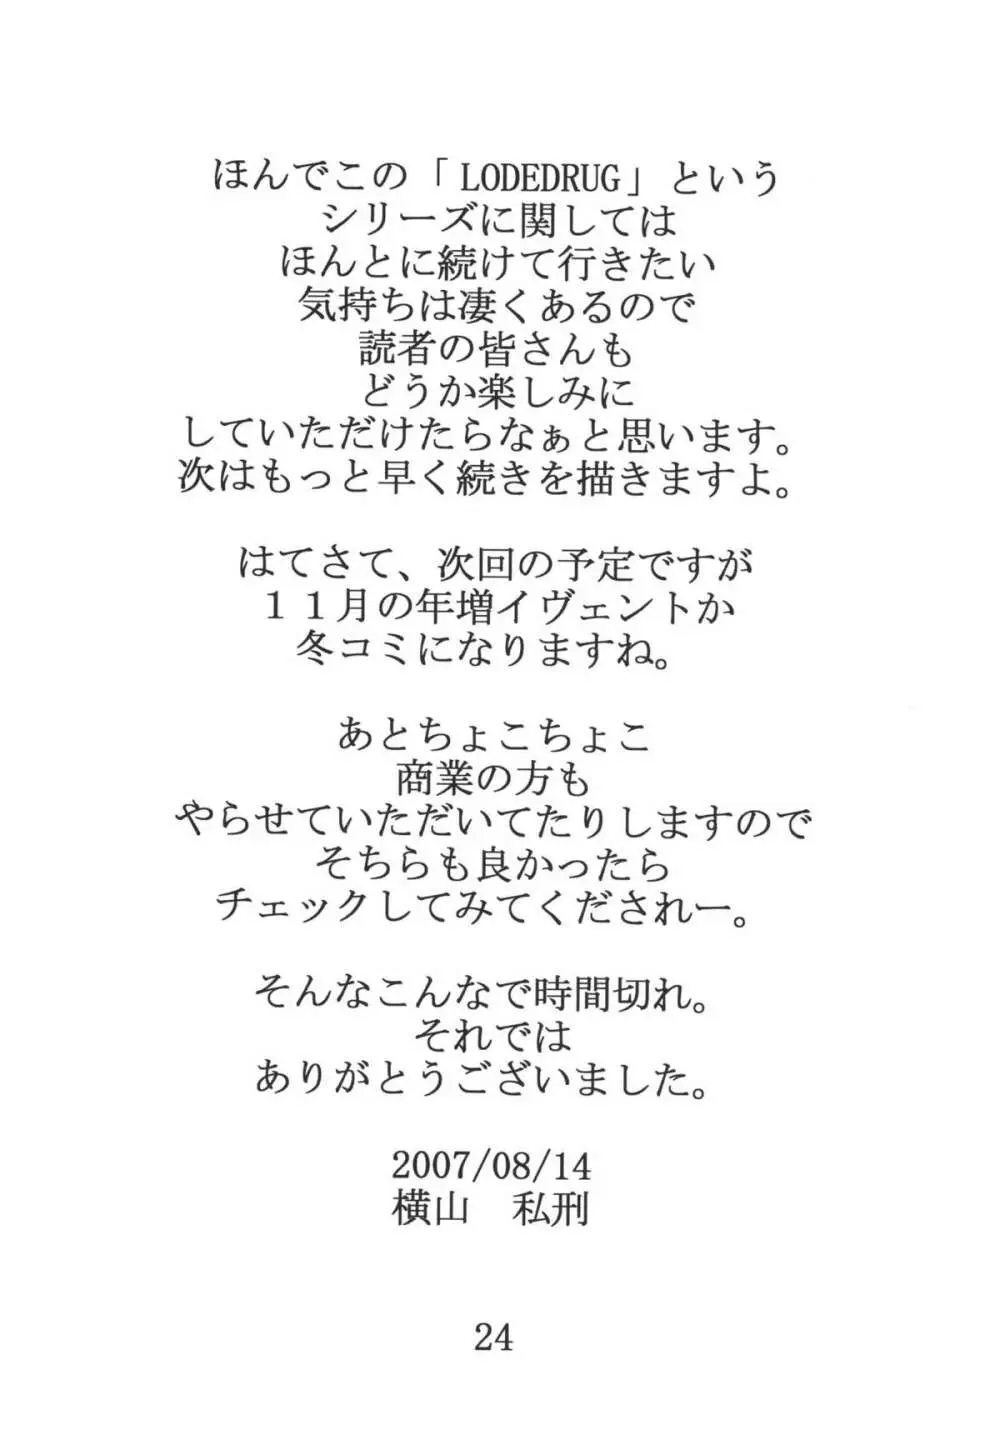 ほんでこの「LODEDRUG」という
シリーズに関しては
ほんとに続けて行きたい
気持ちは凄くあるので
読者の皆さんも
どうか楽しみに
していただけたらなぁと思います。
次はもっと早く続きを描きますよ。
はてさて、次回の予定ですが
１１月の年増イヴェントか
冬コミになりますね。
あとちょこちょこ
商業の方も
やらせていただいてたりしますので
そちらも良かったら
チェックしてみてくだされー。
そんなこんなで時間切れ。
それでは
ありがとうございました。
2007/08/14
横山　私刑
24